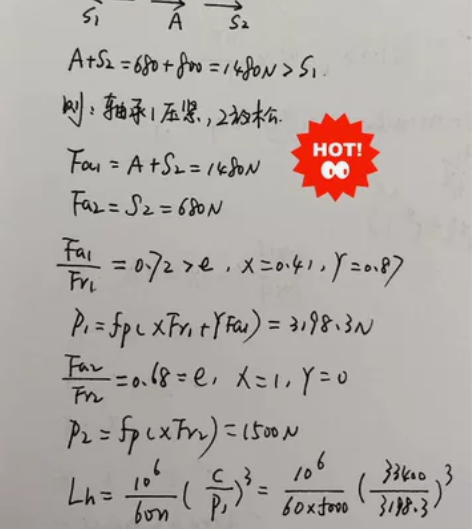 S₁ A S₂
A+S₂=680+800=1480N>S₁
则:轴承1压紧,2放松.
HOT!
Fa₁=A+S₂=1480N
Fa₂=S₂=680N
Fa₁/Fr₁=0.72>e, X=0.41, Y=0.87
P₁=fp(XFr₁+YFa₁)=3198.3N
Fa₂/Fr₂=0.68=e, X=1, Y=0
P₂=fp(XFr₂)=1500N
Lh=10⁶/60n(C/P₁)³=10⁶/60×5000(33400/3198.3)³